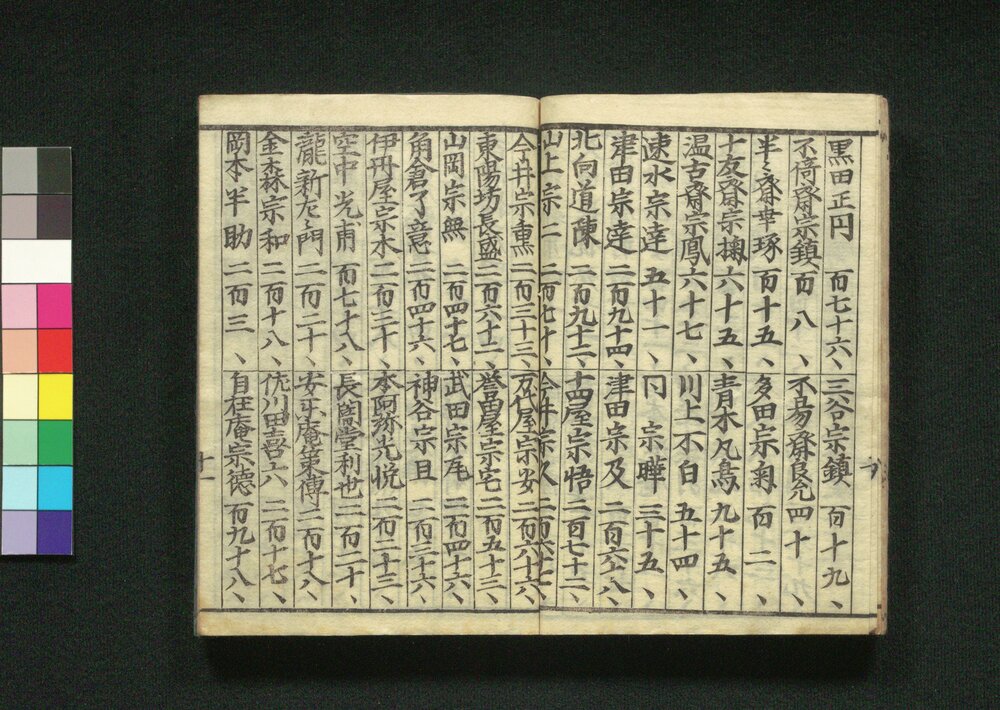 黒田正円 百七十六、三谷宗鎮 百十九、
不倚齋宗鎮 百八、不易齋良允 四十、
半々齋 琢 百十五、多田宗菊 百二、
十友齋宗掬 六十五、青木凡鳥 九十五、
温古齋宗鳳 六十七、川上不白 五十四、
速水宗達 五十一、同 宗曄 三十五、
津田宗達 二百九十四、津田宗及 二百六十八、
北向道陳 二百九十二、十四屋宗悟 二百七十二、
山上宗二 二百七十、今井宗久 二百六十二、
今井宗薫 二百三十三、万代屋宗安 二百六十六、
東陽坊長盛 二百六十二、誉田屋宗宅 二百五十三、
山岡宗無 二百四十七、武田宗尾 二百四十六、
角倉了意 二百四十六、神谷宗旦 二百三十六、
伊丹屋宗不 二百三十、本阿弥光悦 二百二十三、
空中光甫 百七十八、長闇堂利也 二百二十、
瀧新左門 二百二十、安楽庵策傳 二百十八、
金森宗和 二百十八、佐川田喜六 二百十七、
岡本半助 二百三、自在庵宗徳 百九十八、
十一